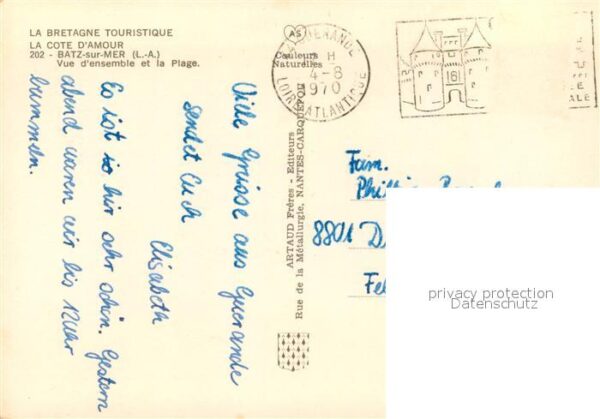 LA BRETAGNE TOURISTIQUE
LA COTE D'AMOUR
202 - BATZ-sur-MER (L.-A.)
Vue d'ensemble et la Plage.
AS
Couleurs
Naturelles
GUERANDE
H
4-8
1970
LOIRE ATLANTIQUE
16
LE
ALE
Viele Grüsse aus Guerande
sendet Euch
Elisabeth
Es ist hir sehr schön. Gestern
abend waren wir bis 12 Uhr
bummeln.
ARTAUD Frères - Editeurs
Rue de la Métallurgie, NANTES-CARQUEFOU
Fam.
8801 D
Fe
privacy protection
Datenschutz